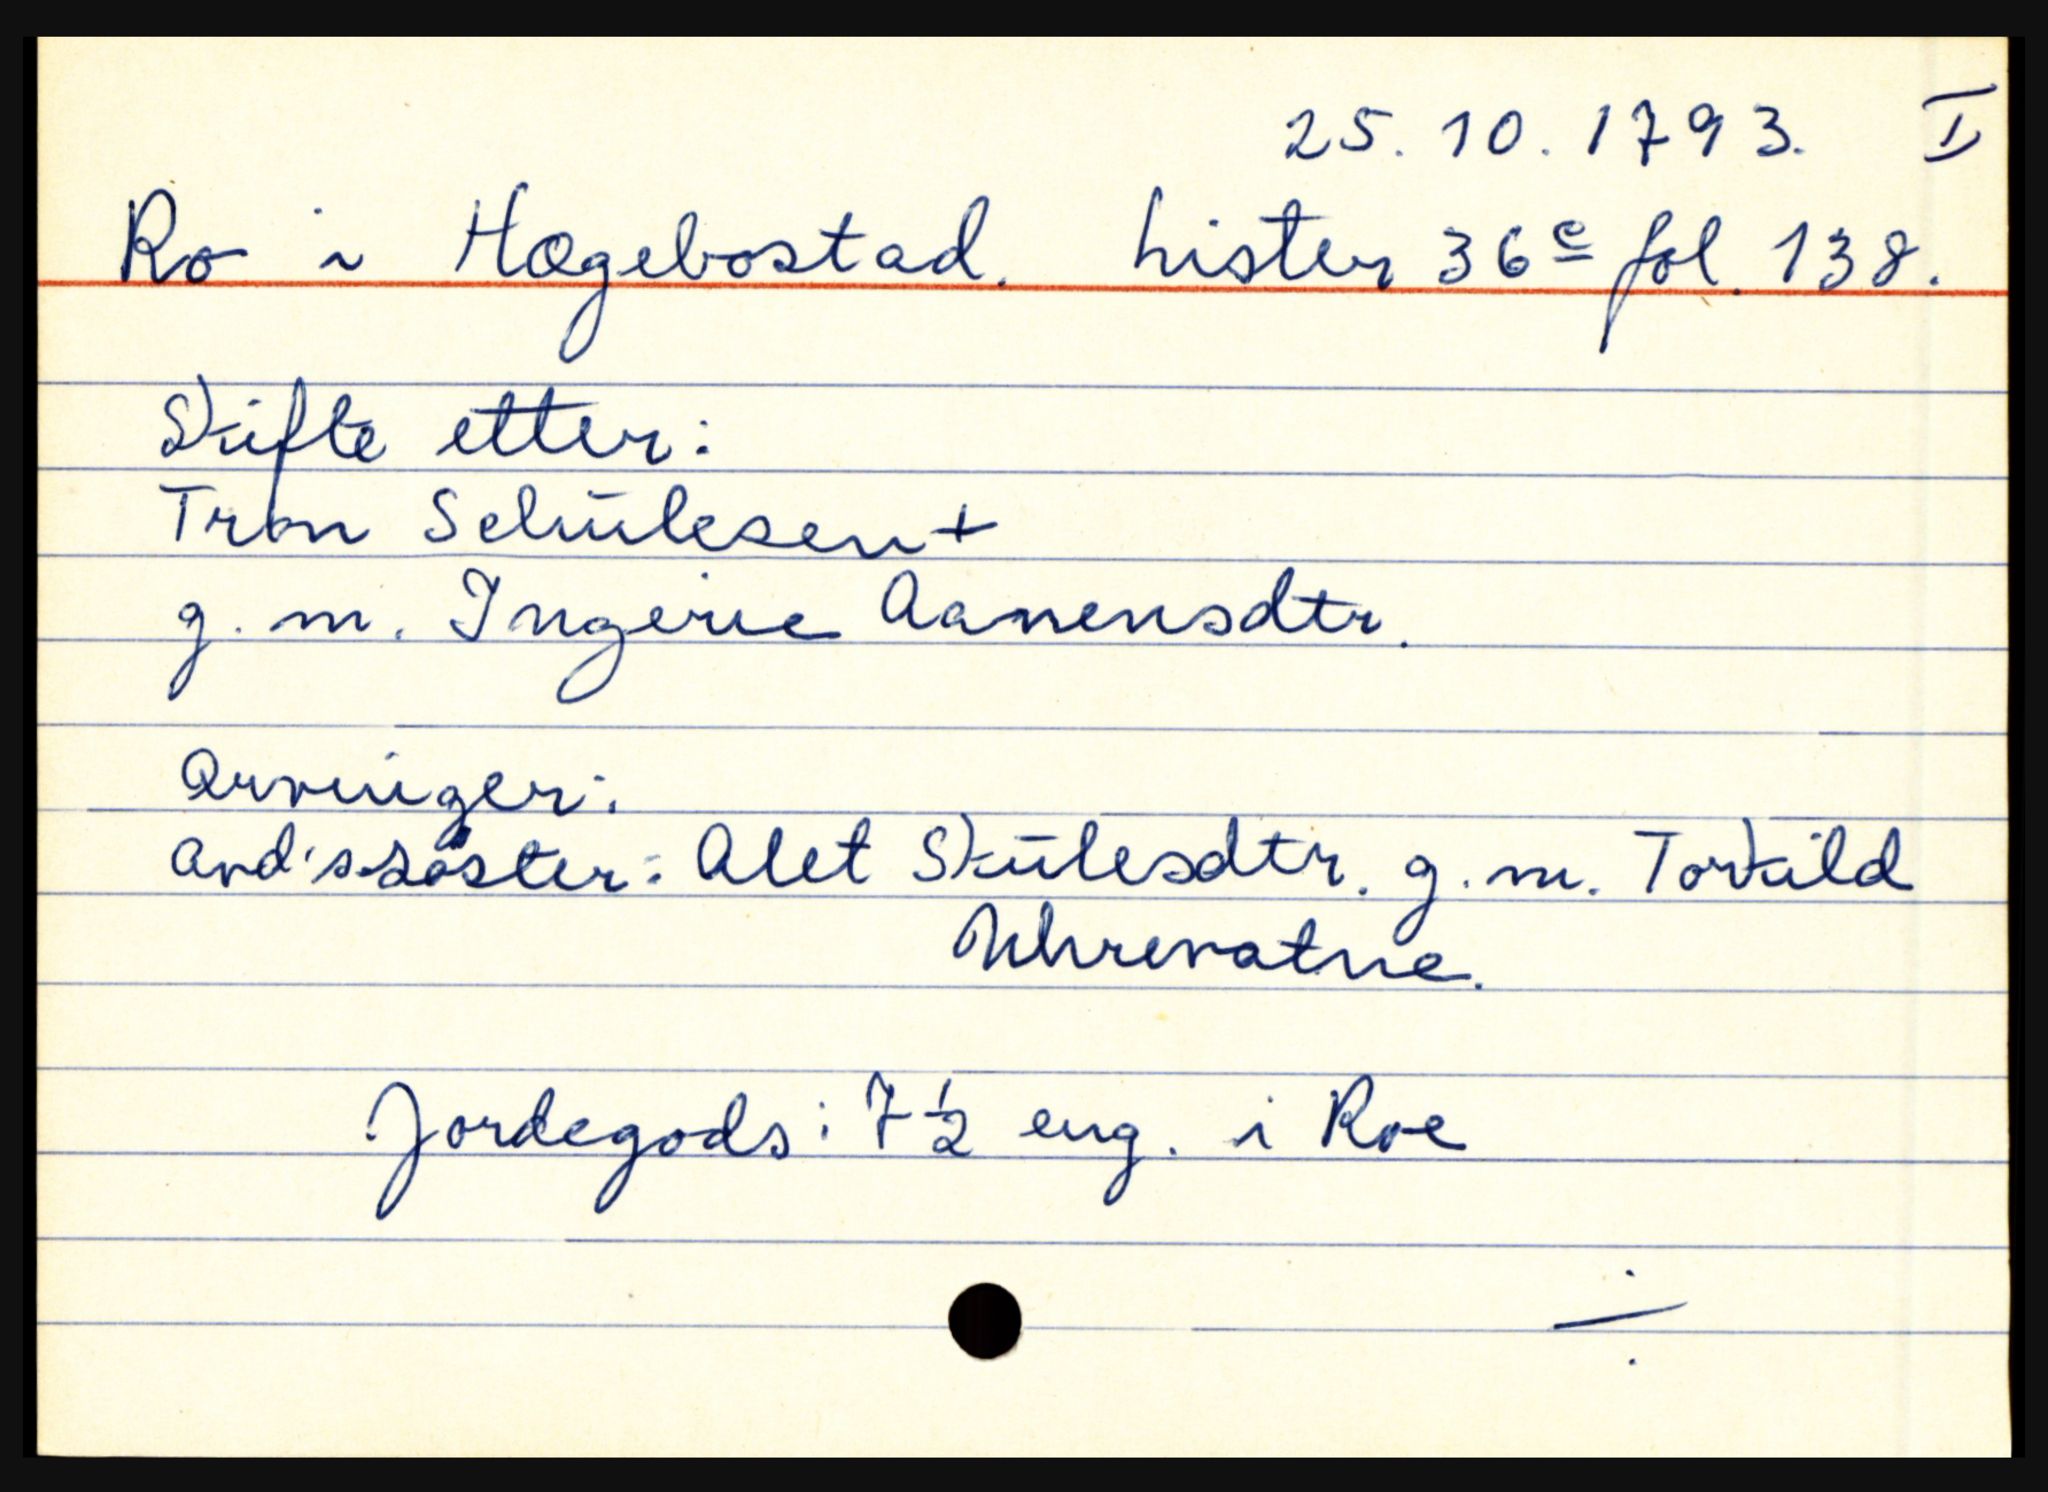 25. 10. 1793. II
Ro i Hægebostad. Lister 36 c fol. 138.
Skifte etter:
Tron Schulesen +
g. m. Ingerie Aanensdtr.
Arvinger:
avd's søster: Alet Skulesdtr. g. m. Torkild
Uhrevatne.
Jordegods: 7 1/2 eng. i Roe